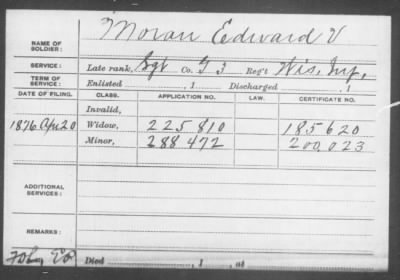 NAME OF SOLDIER: Moran Edward V
SERVICE: Late rank, Sgt Co. G 3 Reg't Wis. Inf,
TERM OF SERVICE: Enlisted , 1 Discharged , 1
DATE OF FILING. CLASS. APPLICATION NO. LAW. CERTIFICATE NO.
Invalid,
1876 Apr 20 Widow, 225 810 185 620
Minor, 288 472 200,023
ADDITIONAL SERVICES:
REMARKS:
Died , 1 , at